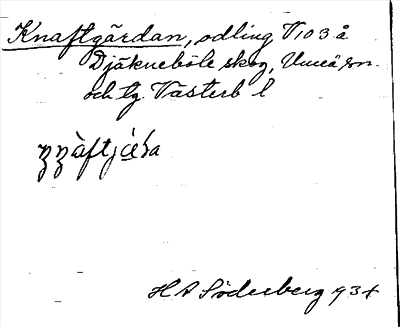 Knaftgärdan, odling V 103 å
Djäkneböle skog, Umeå sn.
och tg. Västerb l
H A Söderberg 934